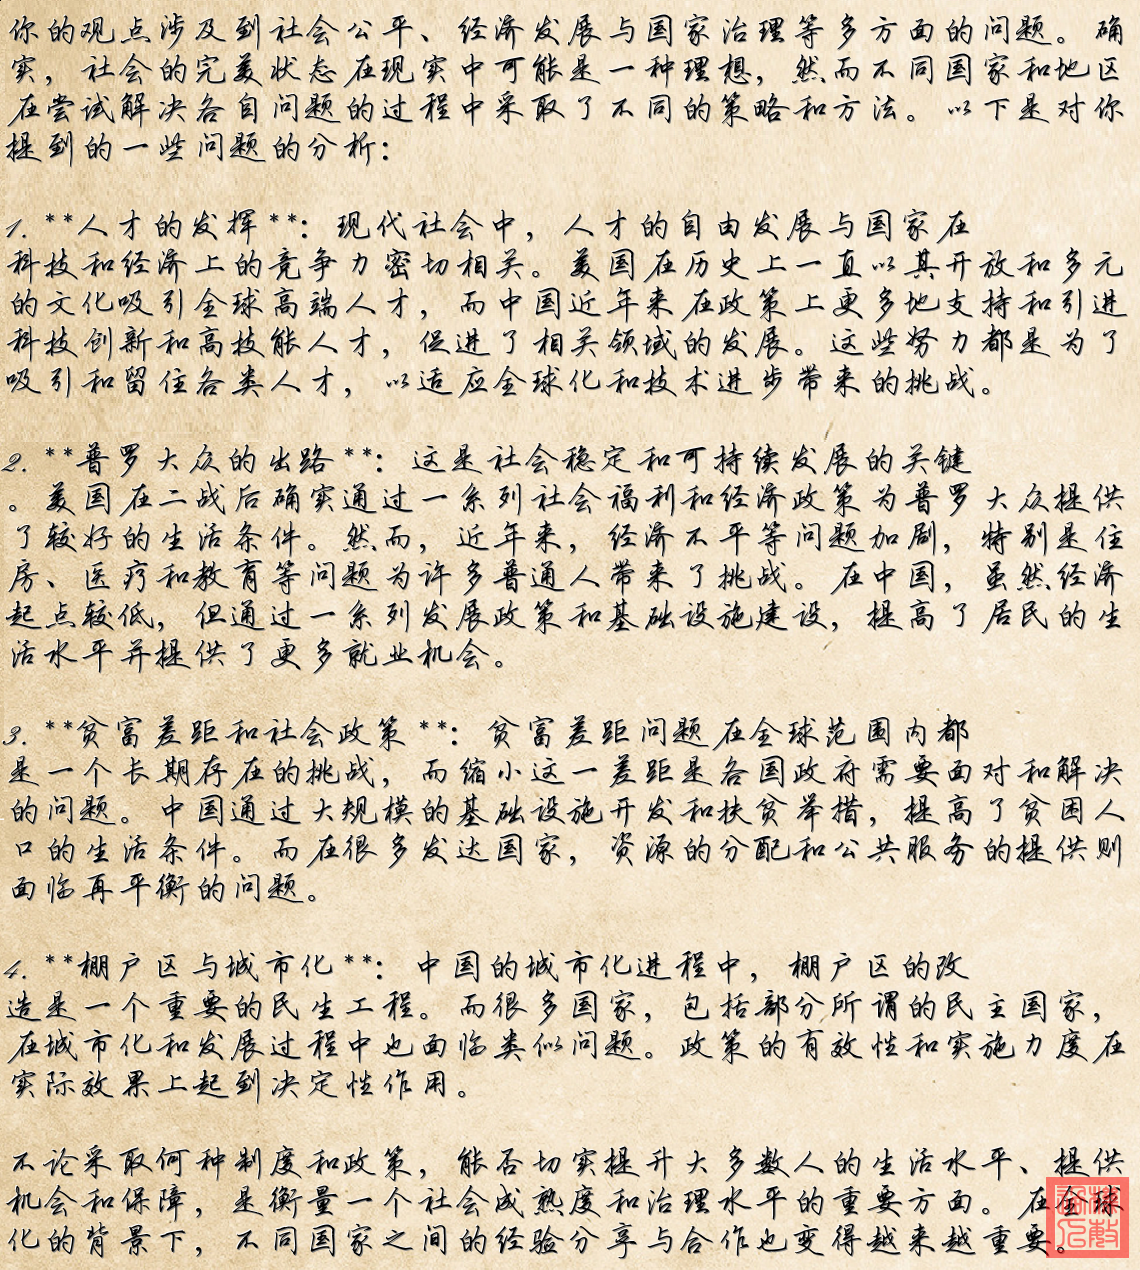 你的观点涉及到社会公平、经济发展与国家治理等多方面的问题。确
实，社会的完美状态在现实中可能是一种理想，然而不同国家和地区
在尝试解决各自问题的过程中采取了不同的策略和方法。以下是对你
提到的一些问题的分析：
1. **人才的发挥**：现代社会中，人才的自由发展与国家在
科技和经济上的竞争力密切相关。美国在历史上一直以其开放和多元
的文化吸引全球高端人才，而中国近年来在政策上更多地支持和引进
科技创新和高技能人才，促进了相关领域的发展。这些努力都是为了
吸引和留住各类人才，以适应全球化和技术进步带来的挑战。
2. **普罗大众的出路**：这是社会稳定和可持续发展的关键
。美国在二战后确实通过一系列社会福利和经济政策为普罗大众提供
了较好的生活条件。然而，近年来，经济不平等问题加剧，特别是住
房、医疗和教育等问题为许多普通人带来了挑战。在中国，虽然经济
起点较低，但通过一系列发展政策和基础设施建设，提高了居民的生
活水平并提供了更多就业机会。
3. **贫富差距和社会政策**：贫富差距问题在全球范围内都
是一个长期存在的挑战，而缩小这一差距是各国政府需要面对和解决
的问题。中国通过大规模的基础设施开发和扶贫举措，提高了贫困人
口的生活条件。而在很多发达国家，资源的分配和公共服务的提供则
面临再平衡的问题。
4. **棚户区与城市化**：中国的城市化进程中，棚户区的改
造是一个重要的民生工程。而很多国家，包括部分所谓的民主国家，
在城市化和发展过程中也面临类似问题。政策的有效性和实施力度在
实际效果上起到决定性作用。
不论采取何种制度和政策，能否切实提升大多数人的生活水平、提供
机会和保障，是衡量一个社会成熟度和治理水平的重要方面。在全球
化的背景下，不同国家之间的经验分享与合作也变得越来越重要。